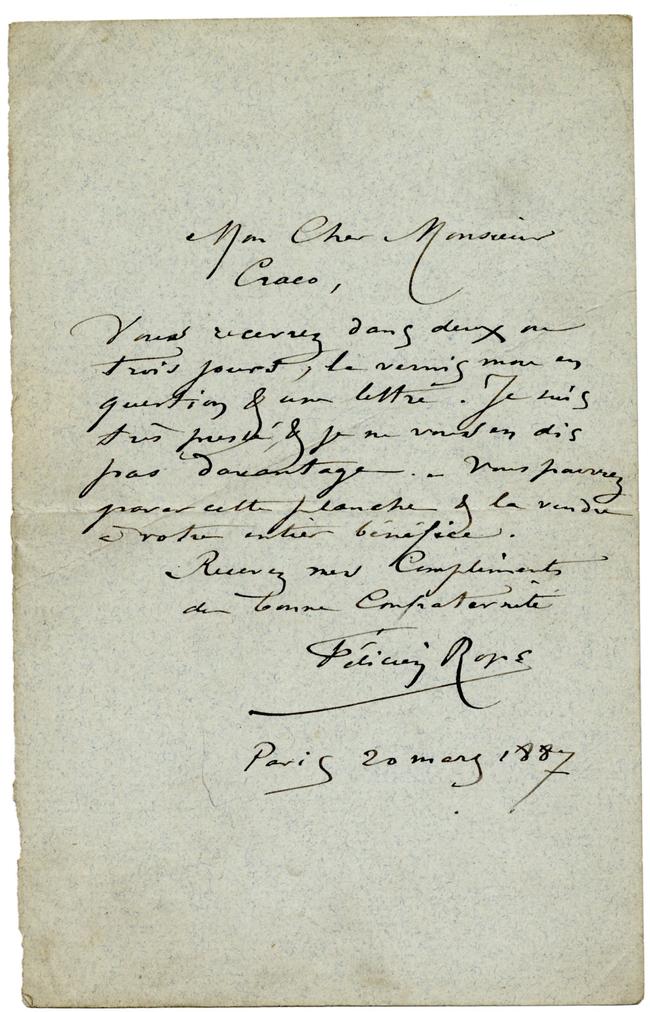 Mon Cher Monsieur
Craco,
Vous recevrez dans deux ou
trois jours, le vernis mou en
question & une lettre. Je suis
très pressé, & je ne vous en dis
pas davantage. – Vous pourrez
graver cette planche & la vendre
à votre entier bénéfice.
Recevez mes Compliments
de bonne Confraternité
Félicien Rops
Paris 20 mars 1887